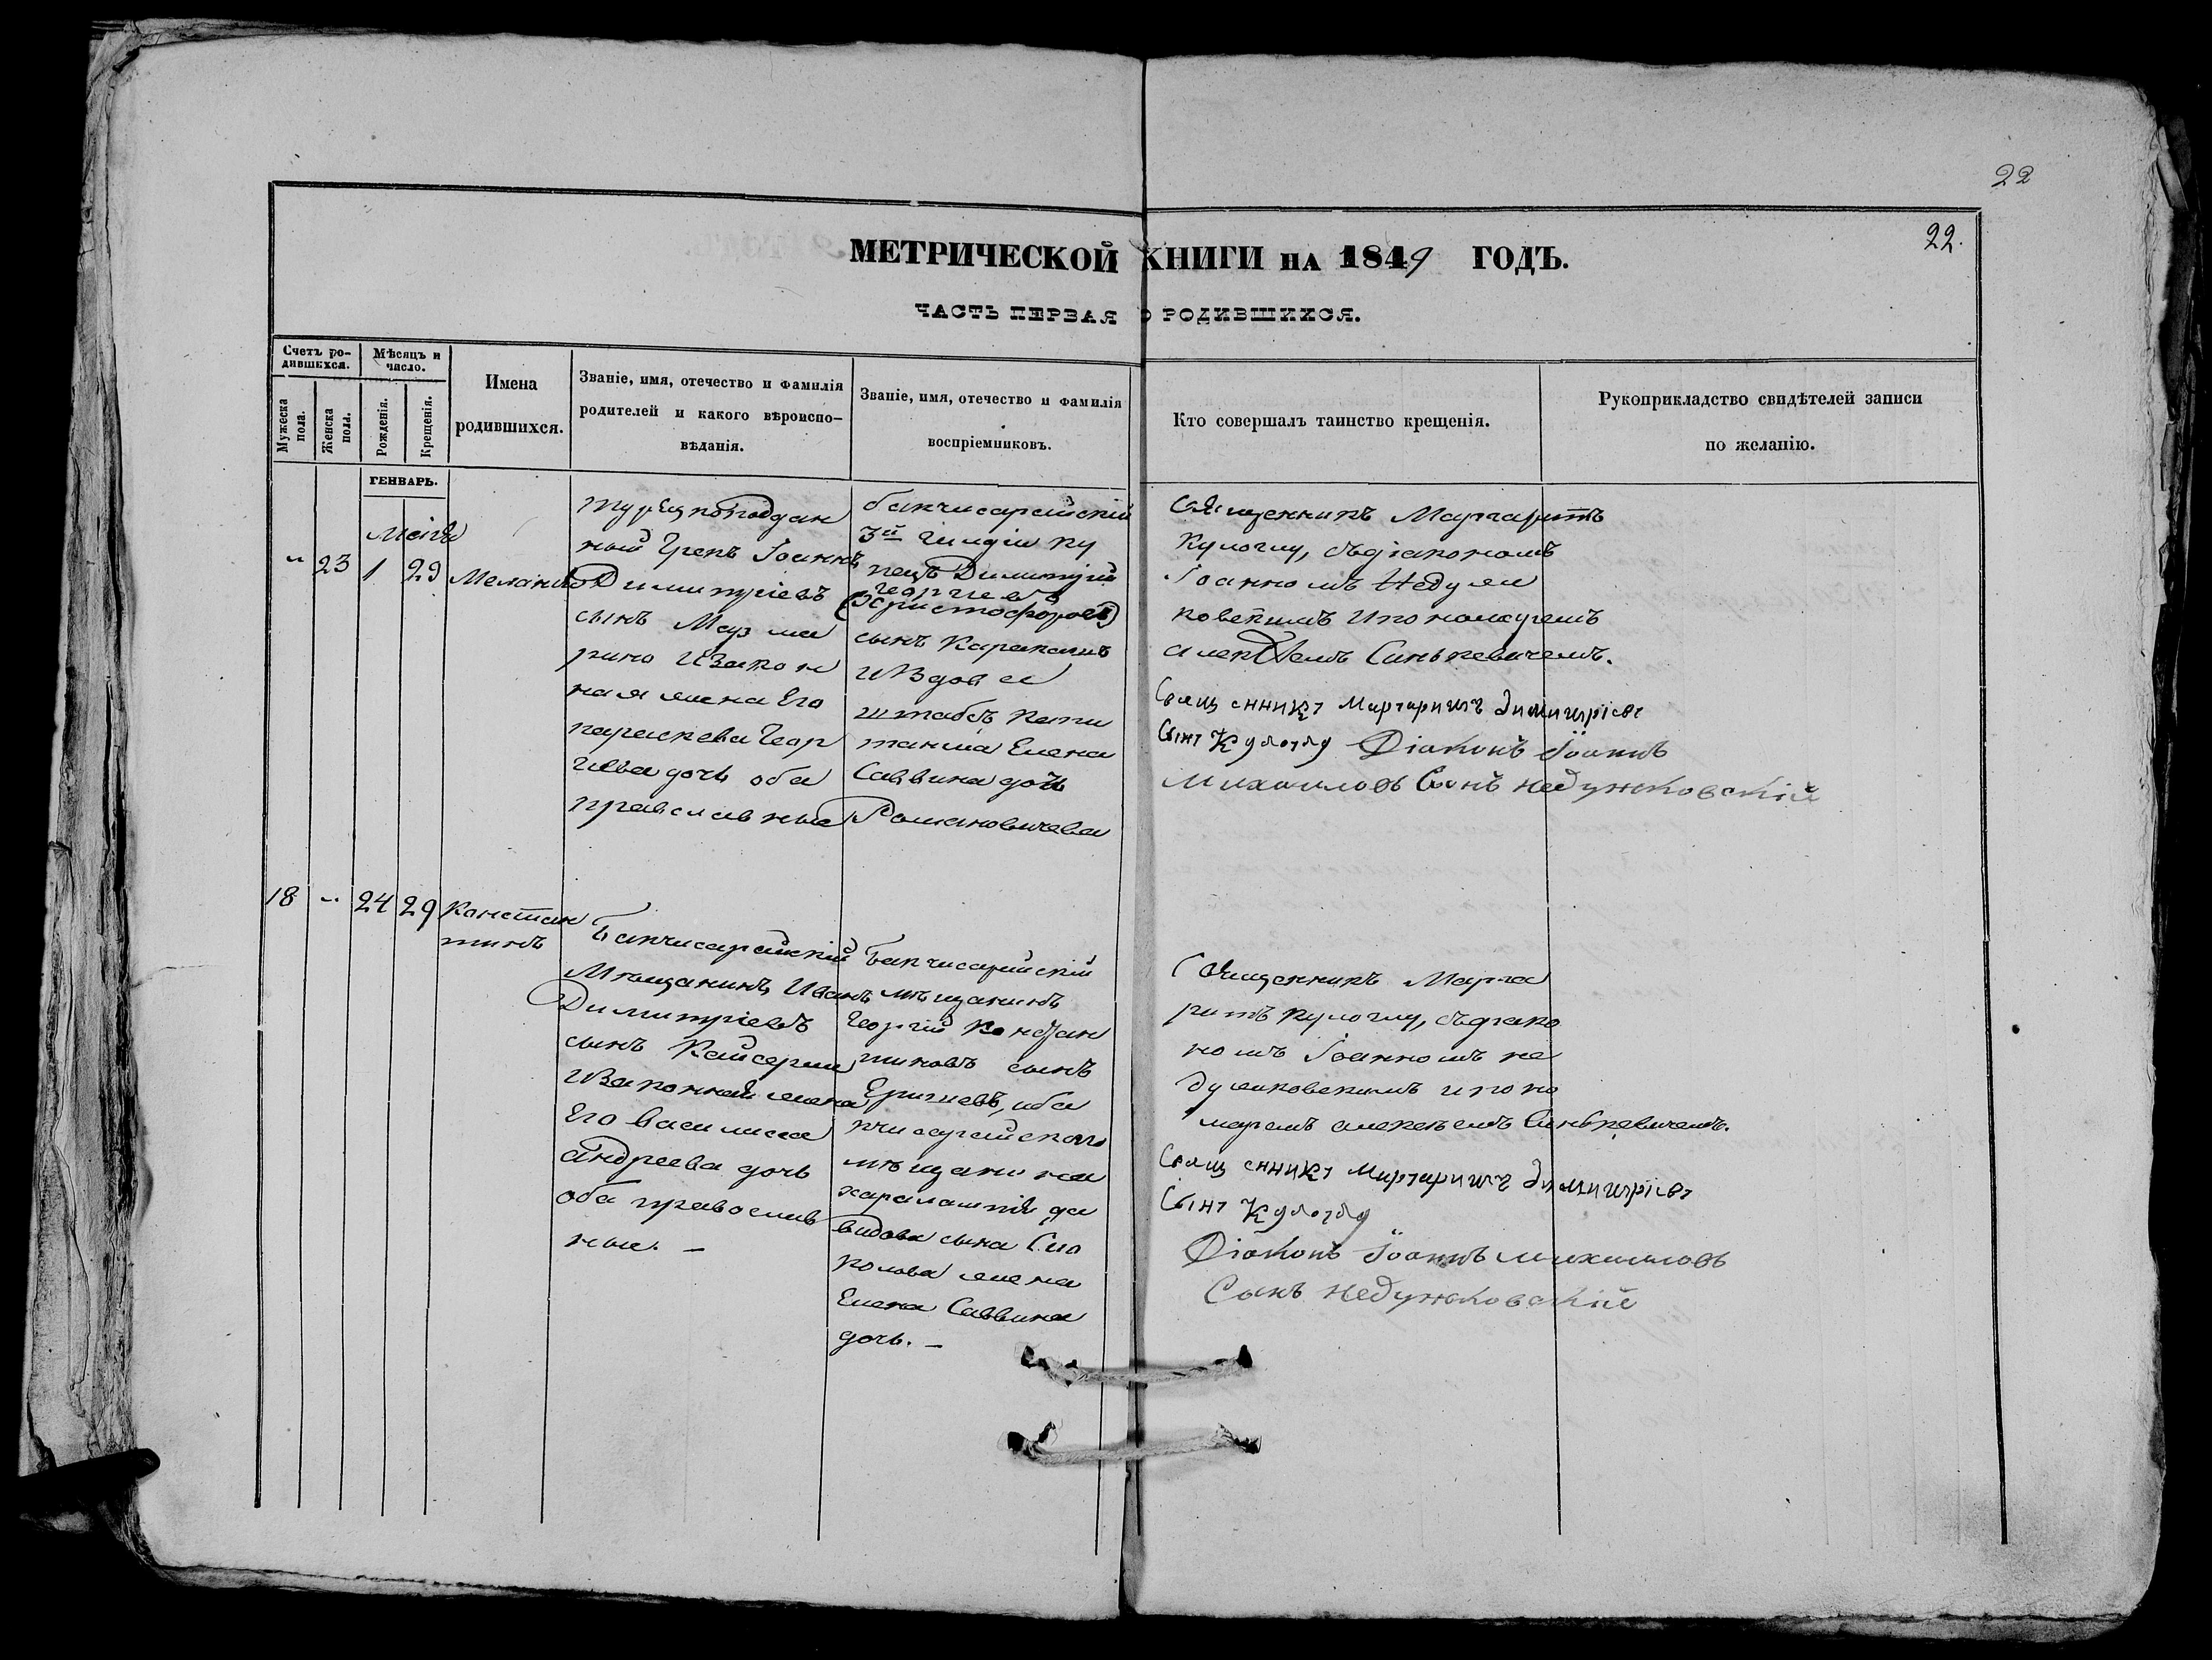 22
22.
МЕТРИЧЕСКОЙ КНИГИ НА 1849 ГОДЪ.
ЧАСТЬ ПЕРВАЯ О РОДИВШИХСЯ.
Счетъ ро-
дившихся.
Мужеска
пола.
Женска
пола.
Мѣсяцъ и
число.
Рожденія.
Крещенія.
Имена
родившихся.
Званіе, имя, отечество и фамилія
родителей и какого вѣроиспо-
вѣданія.
Званіе, имя, отечество и фамилія
воспріемниковъ.
Кто совершалъ таинство крещенія.
Рукоприкладство свидѣтелей записи
по желанію.
ГЕНВАРЬ.
Маія
" 23 1 29 Меланія
турецкоподдан
ный Грекъ Іоаннъ
Димитріевъ
сынъ Маз
рино И Закон
ная жена Его
параскева Геор
гіева дочь оба
православные
бакчисарайскій
3й гильдіи ку
пецъ Димитрій
Георгіевъ
(Христофоровъ)
сынъ Каракашъ
И Вдова
штабсъ капи
танша Елена
Саввина дочь
Романовичева
Священникъ Маргаритъ
Кулоглу, съ діакономъ
Іоанномъ Недуж
ковскимъ И пономаремъ
Алексѣемъ Синькевичемъ.
Священникъ Маргаритъ Димитріевъ
Сынъ Кулоглу Діаконъ Іоаннъ
Михаиловъ Сынъ Недужковскій
18 " 24 29 Констан
тинъ
Бакчисарайскій
Мѣщанинъ Иванъ
Димитріевъ
сынъ Кайсерли
И Законная жена
Его Василиса
Андреева дочь
оба православ
ные. —
Бакчисарайскій
мѣщанинъ
Георгій Констан
тиновъ сынъ
и ба
кчисарайскаго
мѣщанина
харалампія да
видова сына Сио
колова жена
Елена Саввина
дочь. —
Священникъ Марга
ритъ Кулоглу, съ діако
номъ Іоанномъ не
дужковскимъ и поно
маремъ алексѣемъ Синькевичемъ.
Священникъ Маргаритъ Димитріевъ
Сынъ Кулоглу
Діаконъ Іоаннъ Михаиловъ
Сынъ Недужковскій